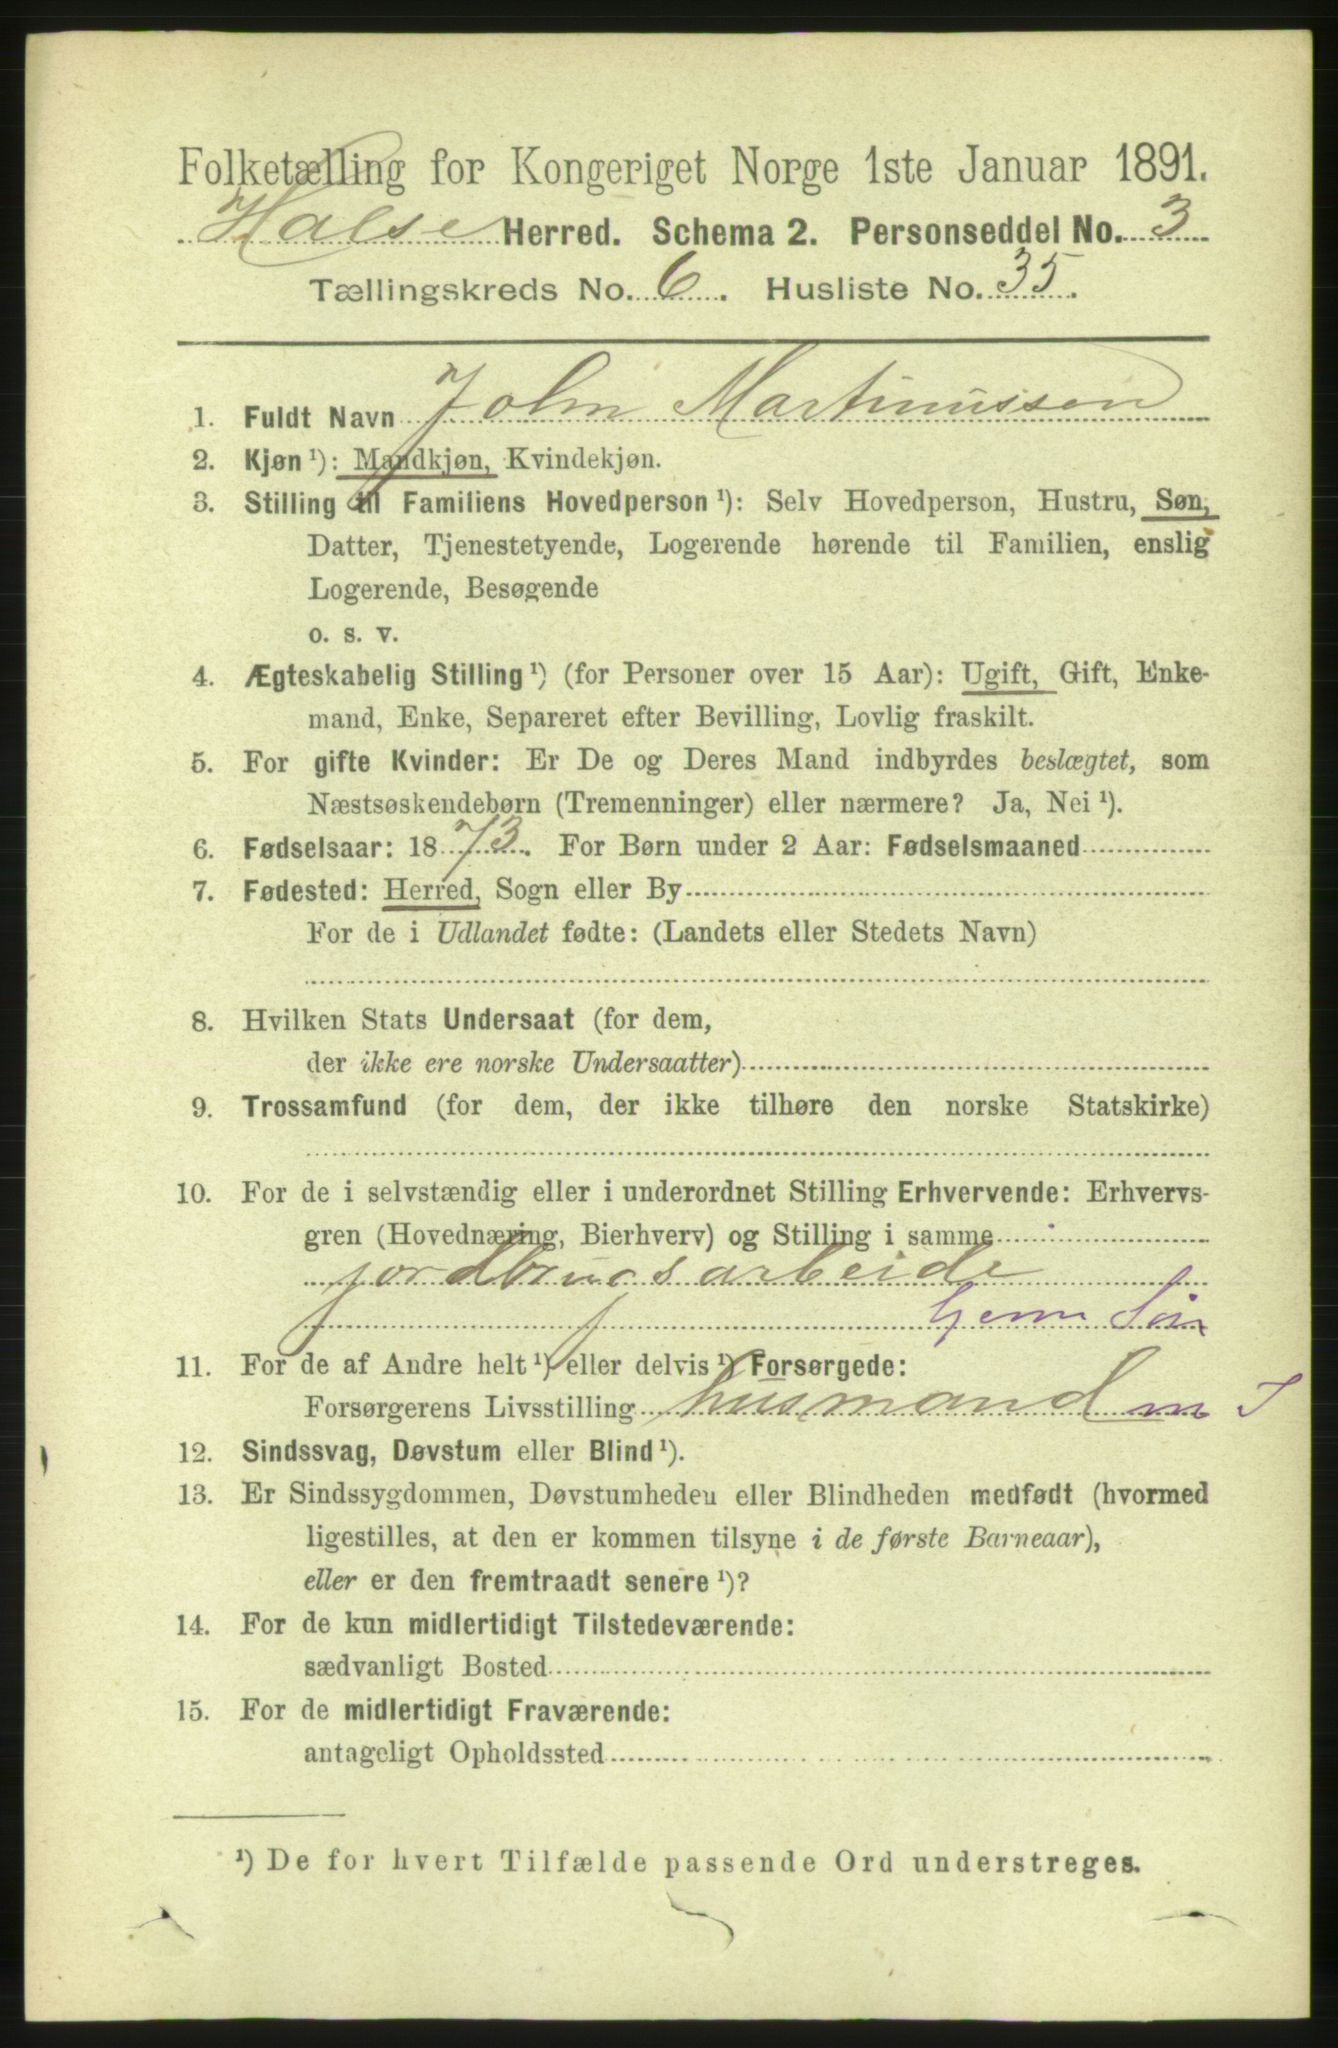 Folketælling for Kongeriget Norge 1ste Januar 1891.
Halse Herred. Schema 2. Personseddel No. 3
Tællingskreds No. 6. Husliste No. 35.
1. Fuldt Navn John Martinussen
2. Kjøn ¹): Mandkjøn, Kvindekjøn.
3. Stilling til Familiens Hovedperson ¹): Selv Hovedperson, Hustru, Søn,
Datter, Tjenestetyende, Logerende hørende til Familien, enslig
Logerende, Besøgende
o. s. v.
4. Ægteskabelig Stilling ¹) (for Personer over 15 Aar): Ugift, Gift, Enke-
mand, Enke, Separeret efter Bevilling, Lovlig fraskilt.
5. For gifte Kvinder: Er De og Deres Mand indbyrdes beslægtet, som
Næstsøskendebørn (Tremenninger) eller nærmere? Ja, Nei ¹).
6. Fødselsaar: 1873. For Børn under 2 Aar: Fødselsmaaned
7. Fødested: Herred, Sogn eller By
For de i Udlandet fødte: (Landets eller Stedets Navn)
8. Hvilken Stats Undersaat (for dem,
der ikke ere norske Undersaatter)
9. Trossamfund (for dem, der ikke tilhøre den norske Statskirke)
10. For de i selvstændig eller i underordnet Stilling Erhvervende: Erhvervs-
gren (Hovednæring, Bierhverv) og Stilling i samme
jordbrugsarbeide
hjem Søn
11. For de af Andre helt ¹) eller delvis ¹) Forsørgede:
Forsørgerens Livsstilling husmand m J
12. Sindssvag, Døvstum eller Blind ¹).
13. Er Sindssygdommen, Døvstumheden eller Blindheden medfødt (hvormed
ligestilles, at den er kommen tilsyne i de første Barneaar),
eller er den fremtraadt senere ¹)?
14. For de kun midlertidigt Tilstedeværende:
sædvanligt Bosted
15. For de midlertidigt Fraværende:
antageligt Opholdssted
¹) De for hvert Tilfælde passende Ord understreges.